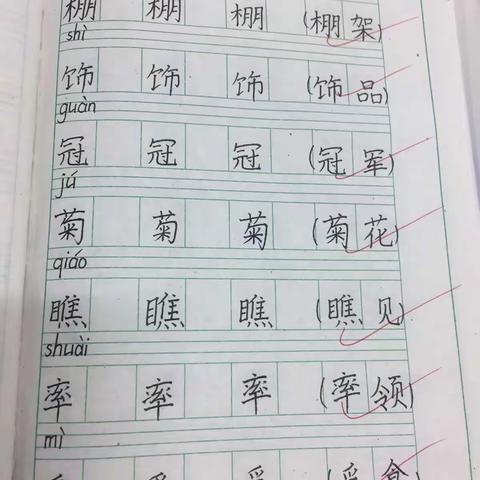 棚 棚 棚 (棚架)
shì
饰 饰 饰 (饰品)
guàn
冠 冠 冠 (冠军)
jú
菊 菊 菊 (菊花)
qiáo
瞧 瞧 瞧 (瞧见)
shuài
率 率 率 (率领)
mì
觅 觅 觅 (觅食)